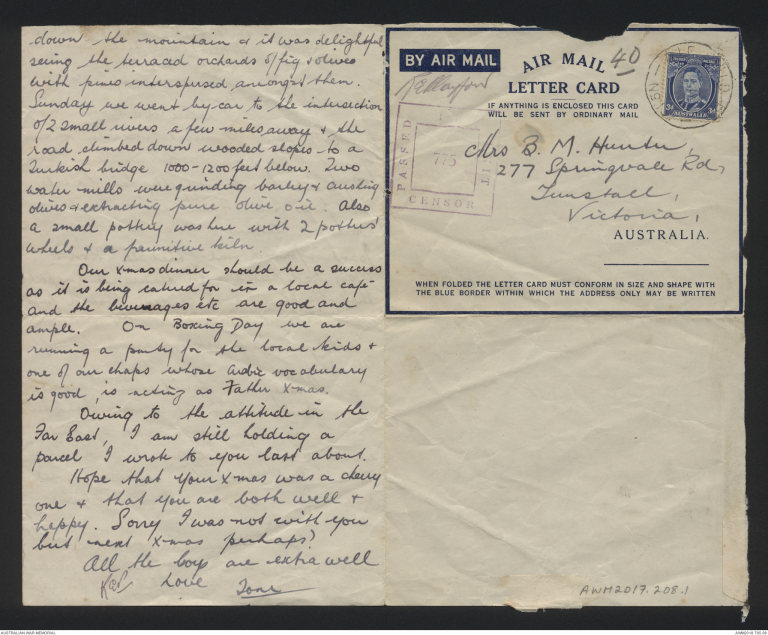 down the mountain & it was delightful
seeing the terraced orchards of fig & olives
with pines interspersed amongst them.
Sunday we went by car to the intersection
of 2 small rivers a few miles away & the
road climbed down wooded slopes to a
Turkish bridge 1000-1200 feet below. Two
water mills were grinding barley & crushing
olives & extracting pure olive oil. Also
a small pottery was here with 2 potters'
wheels & a primitive kiln.
Our Xmas dinner should be a success
as it is being catered for in a local café
and the beverages etc are good and
ample. On Boxing Day we are
running a party for the local kids &
one of our chaps whose Arabic vocabulary
is good, is acting as Father X-mas.
Owing to the attitude in the
Far East, I am still holding a
parcel I wrote to you last about.
Hope that your X-mas was a cheery
one & that you are both well &
happy. Sorry I was not with you
but next X-mas perhaps?
All the boys are extra well
Love
BY AIR MAIL
AIR MAIL
LETTER CARD
40
IF ANYTHING IS ENCLOSED THIS CARD
WILL BE SENT BY ORDINARY MAIL
AUSTRALIA
PASSED
775
CENSOR
Mrs B. M. Hunter,
277 Springvale Rd,
Tunstall,
Victoria,
AUSTRALIA.
WHEN FOLDED THE LETTER CARD MUST CONFORM IN SIZE AND SHAPE WITH
THE BLUE BORDER WITHIN WHICH THE ADDRESS ONLY MAY BE WRITTEN
AWM2017.208.1
AUSTRALIAN WAR MEMORIAL